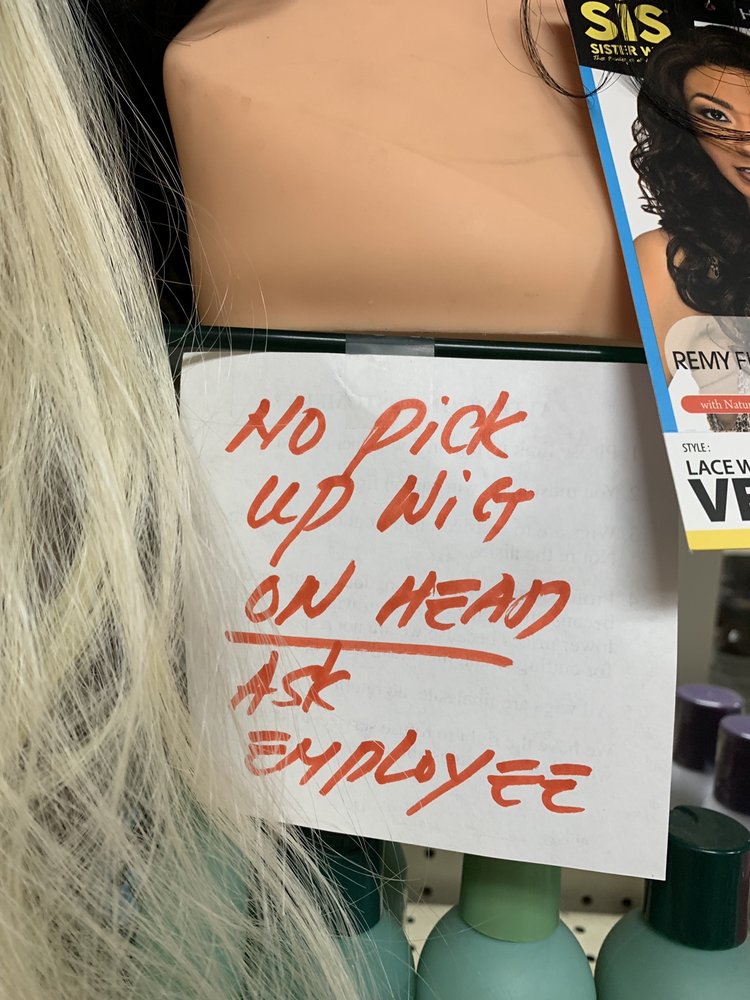 SIS
SISTER W
REMY F
with Natur
STYLE :
LACE W
VE
NO PICK
UP WIG
ON HEAD
ASK
EMPLOYEE